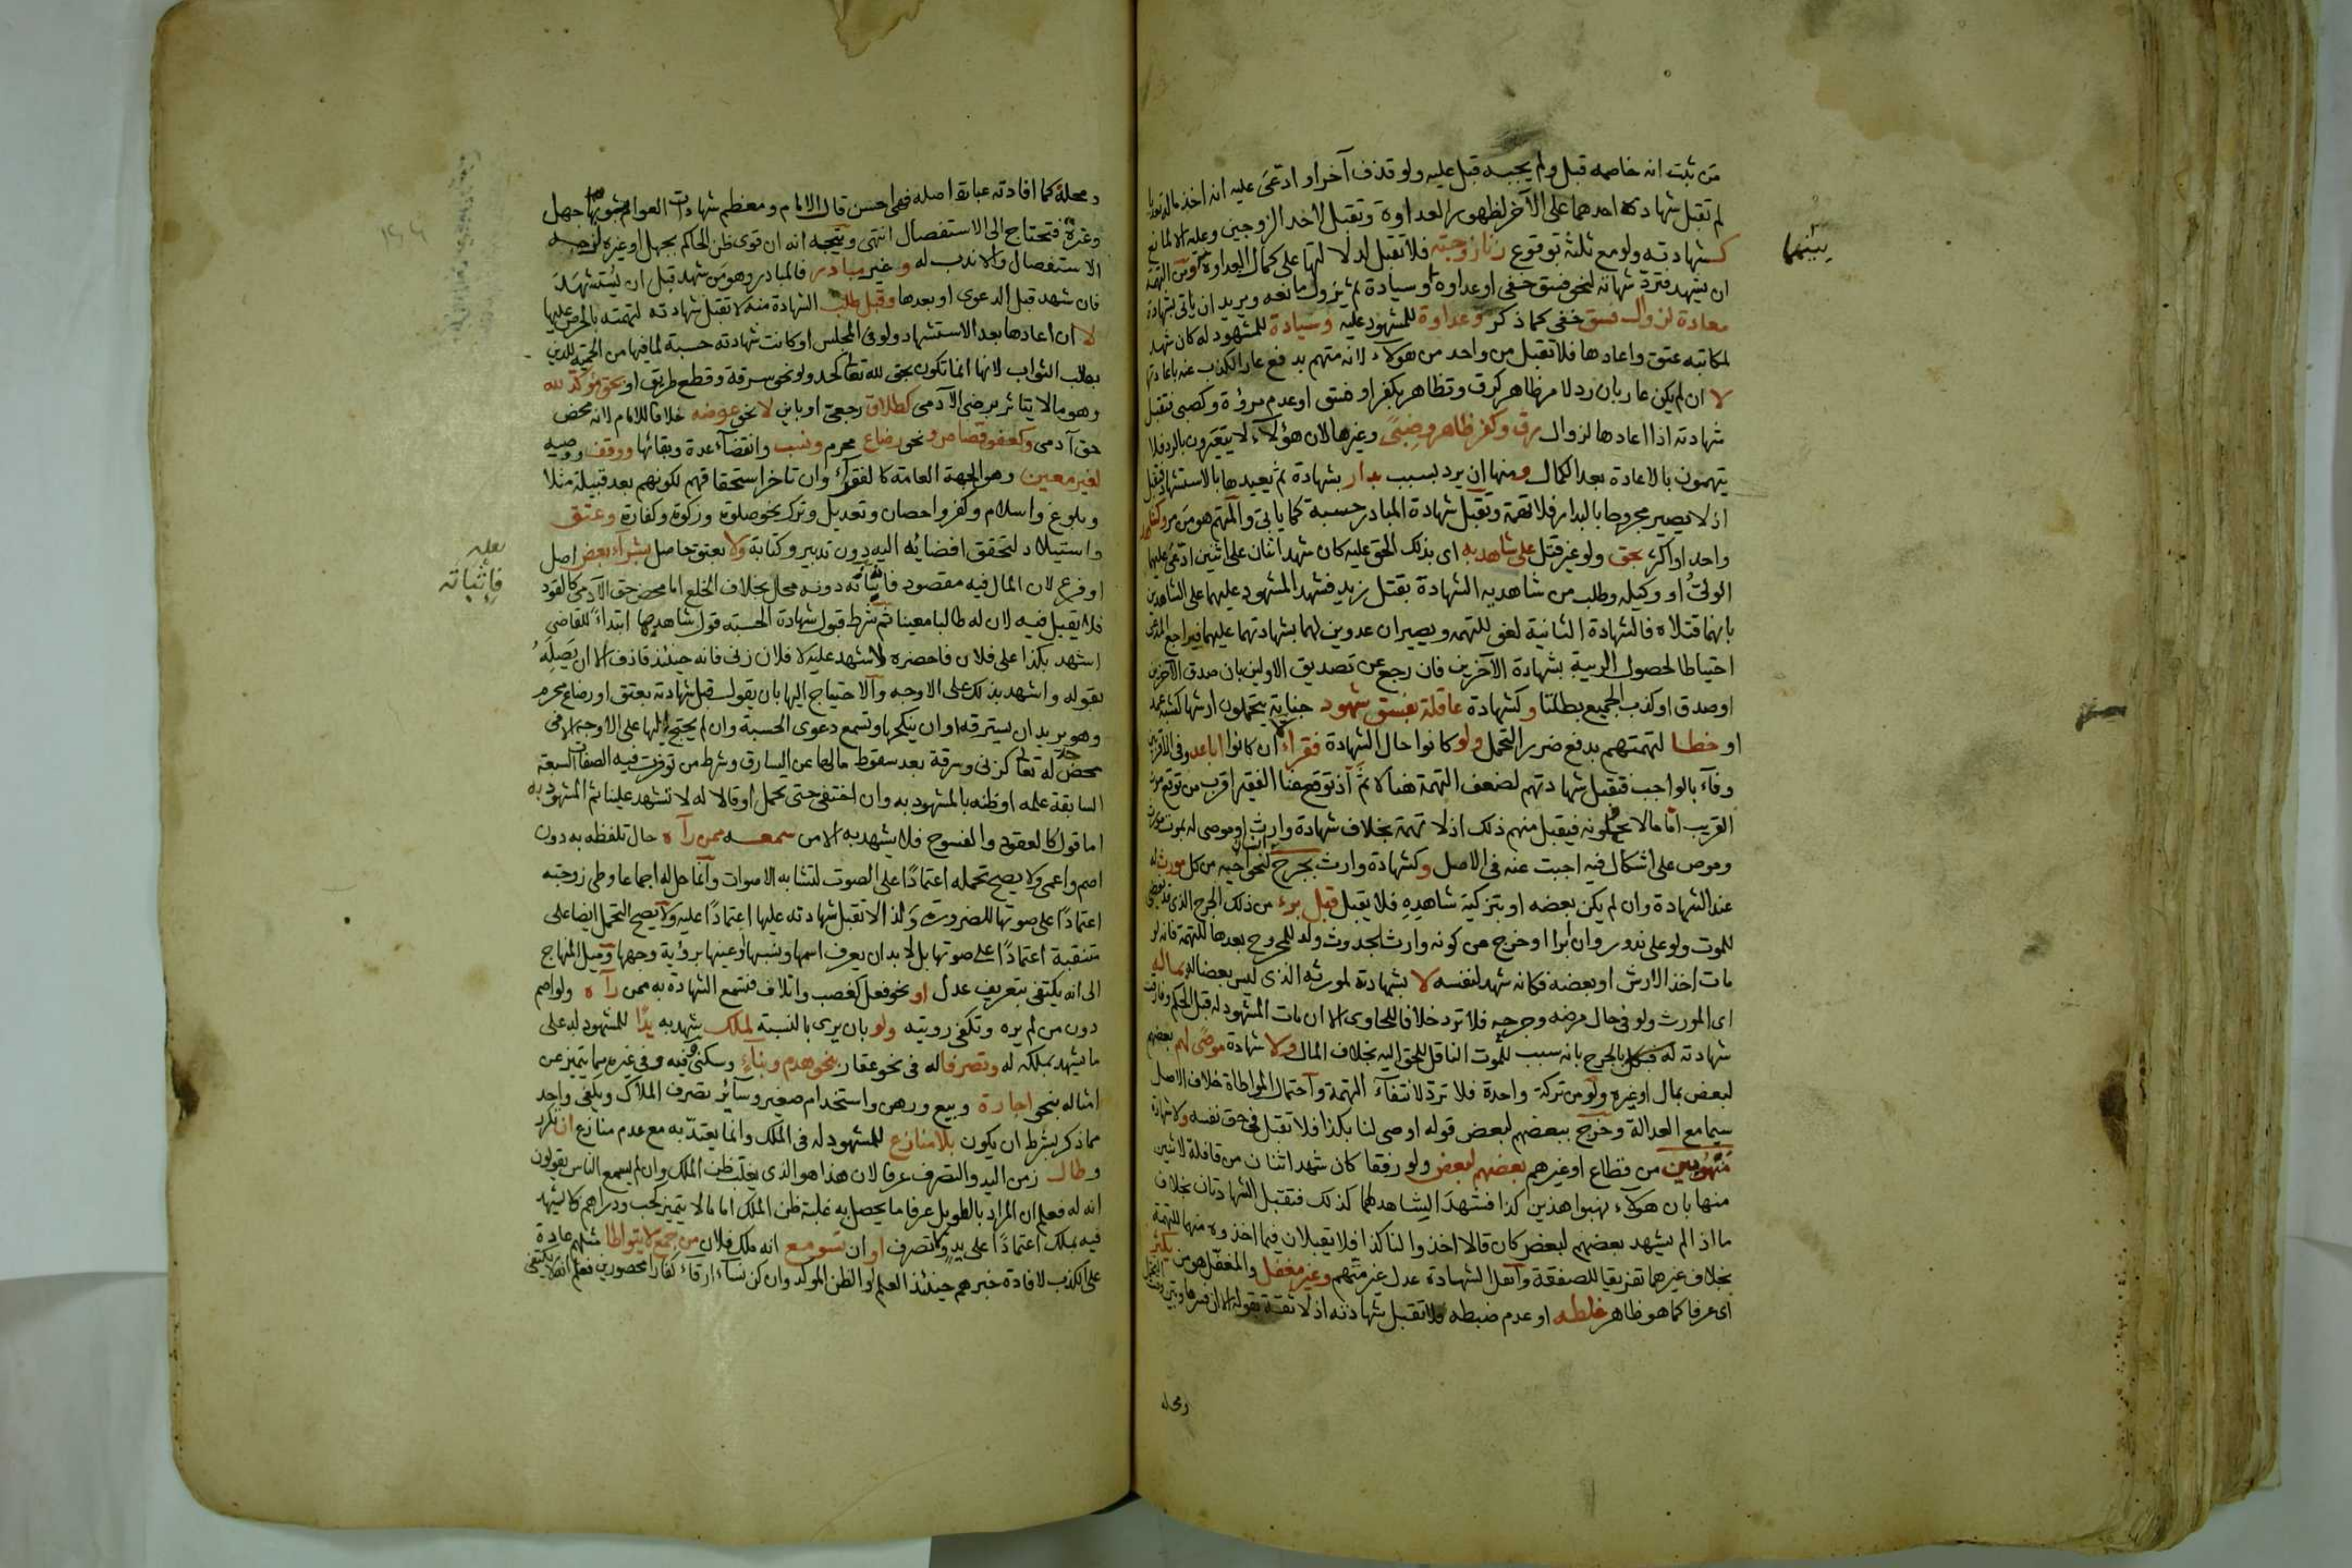 من ثبت انه خاصمه قبل ولم يجبه قبل عليه ولو قذف آخر او ادعى عليه انه اخذ ماله
لم تقبل شهادة احدهما على الآخر لظهور العداوة وتقبل لاحد الزوجين وعليه الا لمانع
كشهادته ولو مع ثلثة توقوع زنا زوجته فلا تقبل لدلالتها على كمال العداوة
بينهما
ان يشهد فترد شهادته لنحو فسق خفي او عداوة او سيادة ثم يزول مانعه ويريد ان ياتي بشهادة
معادة لزوال فسق خفي كما ذكر وعداوة للمشهود عليه وسيادة للمشهود له كان شهد
لمكاتبه عتق واعادها فلا تقبل من واحد من هولاء لانه متهم بدفع عار الكذب عنه باعادتها
لا ان لم يكن عار بان رد لامر ظاهر كرق وتظاهر بكفر او فسق او عدم مروة وكصبي فتقبل
شهادته اذا اعادها لزوال رق وكفر ظاهر وصبى وغيرها لان هؤلاء لا يتعيرون بالرد فلا
يتهمون بالاعادة بعد الكمال ومنها ان يرد بسبب بدار بشهادة ثم يعيدها بالاستشهاد فتقبل
اذ لا يصير مجروحا بالبدار فلا تهمة وتقبل شهادة المبادر حسبة كما ياتي والمتهم هو من
واحد او اكثر بحق ولو غير قتل على شاهد به اى بذلك الحق عليه كان شهد اثنان على اثنين ادعى عليهما
الولي او وكيله وطلب من شاهديه الشهادة بقتل زيد فشهد المشهود عليهما على الشاهدين
بانهما قتلاه فالشهادة الثانية لغو للتهمه ويصيران عدوين لهما بشهادتهما عليهما فيراجع المدعي
احتياطا لحصول الريبة بشهادة الآخرين فان رجع عن تصديق الاولين بان صدق الآخرين
او صدق او كذب الجميع بطلتا وكشهادة عاقلة بفسق شهود جناية يتحملون ارشها كشبه عمد
او خطا لتهمتهم بدفع ضرر التحمل ولو كانوا حال الشهادة فقراء ان كانوا اباعد وفي الاقربين
وفاء بالواجب فتقبل شهادتهم لضعف التهمة هنا لا ثم اذ توقع غنا الفقير اقرب من توقع موت
القريب اما ما لا يحملونه فيقبل منهم ذلك اذ لا تهمة بخلاف شهادة وارث او موصى له بموت مورث
وموص على اشكال فيه اجبت عنه في الاصل وكشهادة وارث بجرح لنحو اخيه من كل مورث له
عند الشهادة وان لم يكن بعضه او بتزكية شاهده فلا يقبل قبل برء من ذلك الجرح الذي قد يفضي
للموت ولو على ندور وان ابرا او خرج عن كونه وارثا بحدوث ولد للمجروح بعدها للتهمة فانه لو
مات اخذ الارش او بعضه فكانه شهد لنفسه لا بشهادة لمورثه الذي ليس بعضا له بمال له
اى المورث ولو في حال مرضه وجرحه فلا ترد خلافا للحاوى الا ان مات المشهود له قبل الحكم وفارقت
شهادته له قبل بالجرح بانه سبب للموت الناقل للحق اليه بخلاف المال ولا شهادة موصى لهم بعضهم
لبعض بمال او غيره ولو من تركة واحدة فلا ترد لانتفاء التهمة واحتمال المواطاة خلاف الاصل
سيما مع العدالة وخرج ببعضهم لبعض قوله اوصى لنا بكذا فلا تقبل في حق نفسه ولا شهادة
منهوبين من قطاع او غيرهم بعضهم لبعض ولو رفقا كان شهد اثنان من قافلة لاثنين
منها بان هولاء نهبوا هذين كذا فشهد الشاهد لهما كذلك فتقبل الشهادتان بخلاف
ما اذا لم يشهد بعضهم لبعض كان قالا اخذوا لنا كذا فلا يقبلان فيما اخذوه منهما للتهمة
بخلاف غيرهما تفريقا للصفقة واهل الشهادة عدل غير متهم وغير مغفل والمغفل هو من يكثر
اى عرفا كما هو ظاهر غلطه او عدم ضبطه فلا تقبل شهادته اذ لا ثقة بقوله الا ان فسرها وبين وقت التحمل
ومحله
ومحله كما افادته عبارة اصله فهي احسن قال الامام ومعظم شهادات العوام يشوبها جهل
وغرة فتحتاج الى الاستفصال انتهى ويتجه انه ان قوى ظن الحاكم بجهل او غيره لزمه
الاستفصال والا ندب له وغير مبادر فالمبادر وهو من شهد قبل ان يستشهد
فان شهد قبل الدعوى او بعدها وقبل طلب الشهادة منه لا تقبل شهادته لتهمته بالحرص عليها
لا ان اعادها بعد الاستشهاد ولو في المجلس او كانت شهادته حسبة لما فيها من الحمية للدين
بطلب الثواب لانها انما تكون بحق لله تعالى كحد ولو نحو سرقة وقطع طريق او بحق مؤكد لله
وهو ما لا يتاثر برضى الآدمى كطلاق رجعي او باين لا نحو عوضه خلافا للامام لانه محض
حق آدمى وكعفو قصاص ونحو رضاع محرم ونسب وانقضاء عدة وبقائها ووقف ووصية
لغير معين وهو الجهة العامة كالفقراء وان تاخر استحقاقهم لكونهم بعد قبيلة مثلا
وبلوغ واسلام وكفر واحصان وتعديل وترك نحو صلوة وزكوة وكفارة وعتق
واستيلاد لتحقق افضائه اليه دون تدبير وكتابة ولا بعتق حاصل بشراء بعض اصل
او فرع لان المال فيه مقصود فاثباته دونه محال بخلاف الخلع اما محض حق الآدمى كالقود
فاثباته
فلا يقبل فيه لان له طالبا معينا ثم شرط قبول شهادة الحسبة قول شاهدها ابتداء للقاضى
اشهد بكذا على فلان فاحضره لاشهد عليه لا فلان زنى فانه حينئذ قاذف الا ان يصله
بقوله واشهد بذلك على الاوجه والاحتياج اليها بان يقول قبل شهادته بعتق او رضاع محرم
وهو يريد ان يسترقه او ان ينكحها وتسمع دعوى الحسبة وان لم يحتج اليها على الاوجه الا في
محض حد له تعالى كزنى وسرقة بعد سقوط مالها عن السارق وشرط من توفرت فيه الصفات السبعة
السابقة علمه او ظنه بالمشهود به وان اختفى حتى يحمل او قالا له لا تشهد علينا ثم المشهود به
اما قول كالعقود والفسوخ فلا يشهد به الا من سمعه ممن رآه حال تلفظه به دون
اصم واعمى ولا يصح تحمله اعتمادا على الصوت لتشابه الاصوات وانما حل له اجماعا وطى زوجته
اعتمادا على صوتها للضرورة ولذا لا تقبل شهادته عليها اعتمادا عليه ولا يصح التحمل ايضا على
متنقبة اعتمادا على صوتها بل لا بد ان يعرف اسمها ونسبها او عينها برؤية وجهها وميل المنهاج
الى انه يكتفى بتعريف عدل او نحو فعل كغصب واتلاف فتسمع الشهادة به ممن رآه ولو اصم
دون من لم يره وتكفى رويته ولو بان يرى بالنسبة لملك يشهد به يدا للمشهود له على
ما يشهد بملكه له وتصرفا له في نحو عقار بنحو هدم وبناء وسكنى فيه وفي غيره مما يتميز عن
امثاله بنحو اجارة وبيع ورهن واستخدام صغير وسائر تصرف الملاك ويكفى واحد
مما ذكر بشرط ان يكون بلا منازع للمشهود له في الملك وانما يعتد به مع عدم منازع ان تكرر
وطال زمن اليد والتصرف عرفا لان هذا هو الذي يغلب ظن الملك وان لم يسمع الناس يقولون
انه له فعلم ان المراد بالطويل عرفا ما يحصل به غلبة ظن الملك اما ما لا يتميز كحب ودراهم فلا يشهد
فيه بملك اعتمادا على يد وتصرف او ان تسومع انه ملك فلان من جمع لا يتواطا مثلهم عادة
على الكذب لافادة خبرهم حينئذ العلم او الظن الموكد وان كن نساء ارقاء كفارا محصورين فعلم انه لا يكتفى